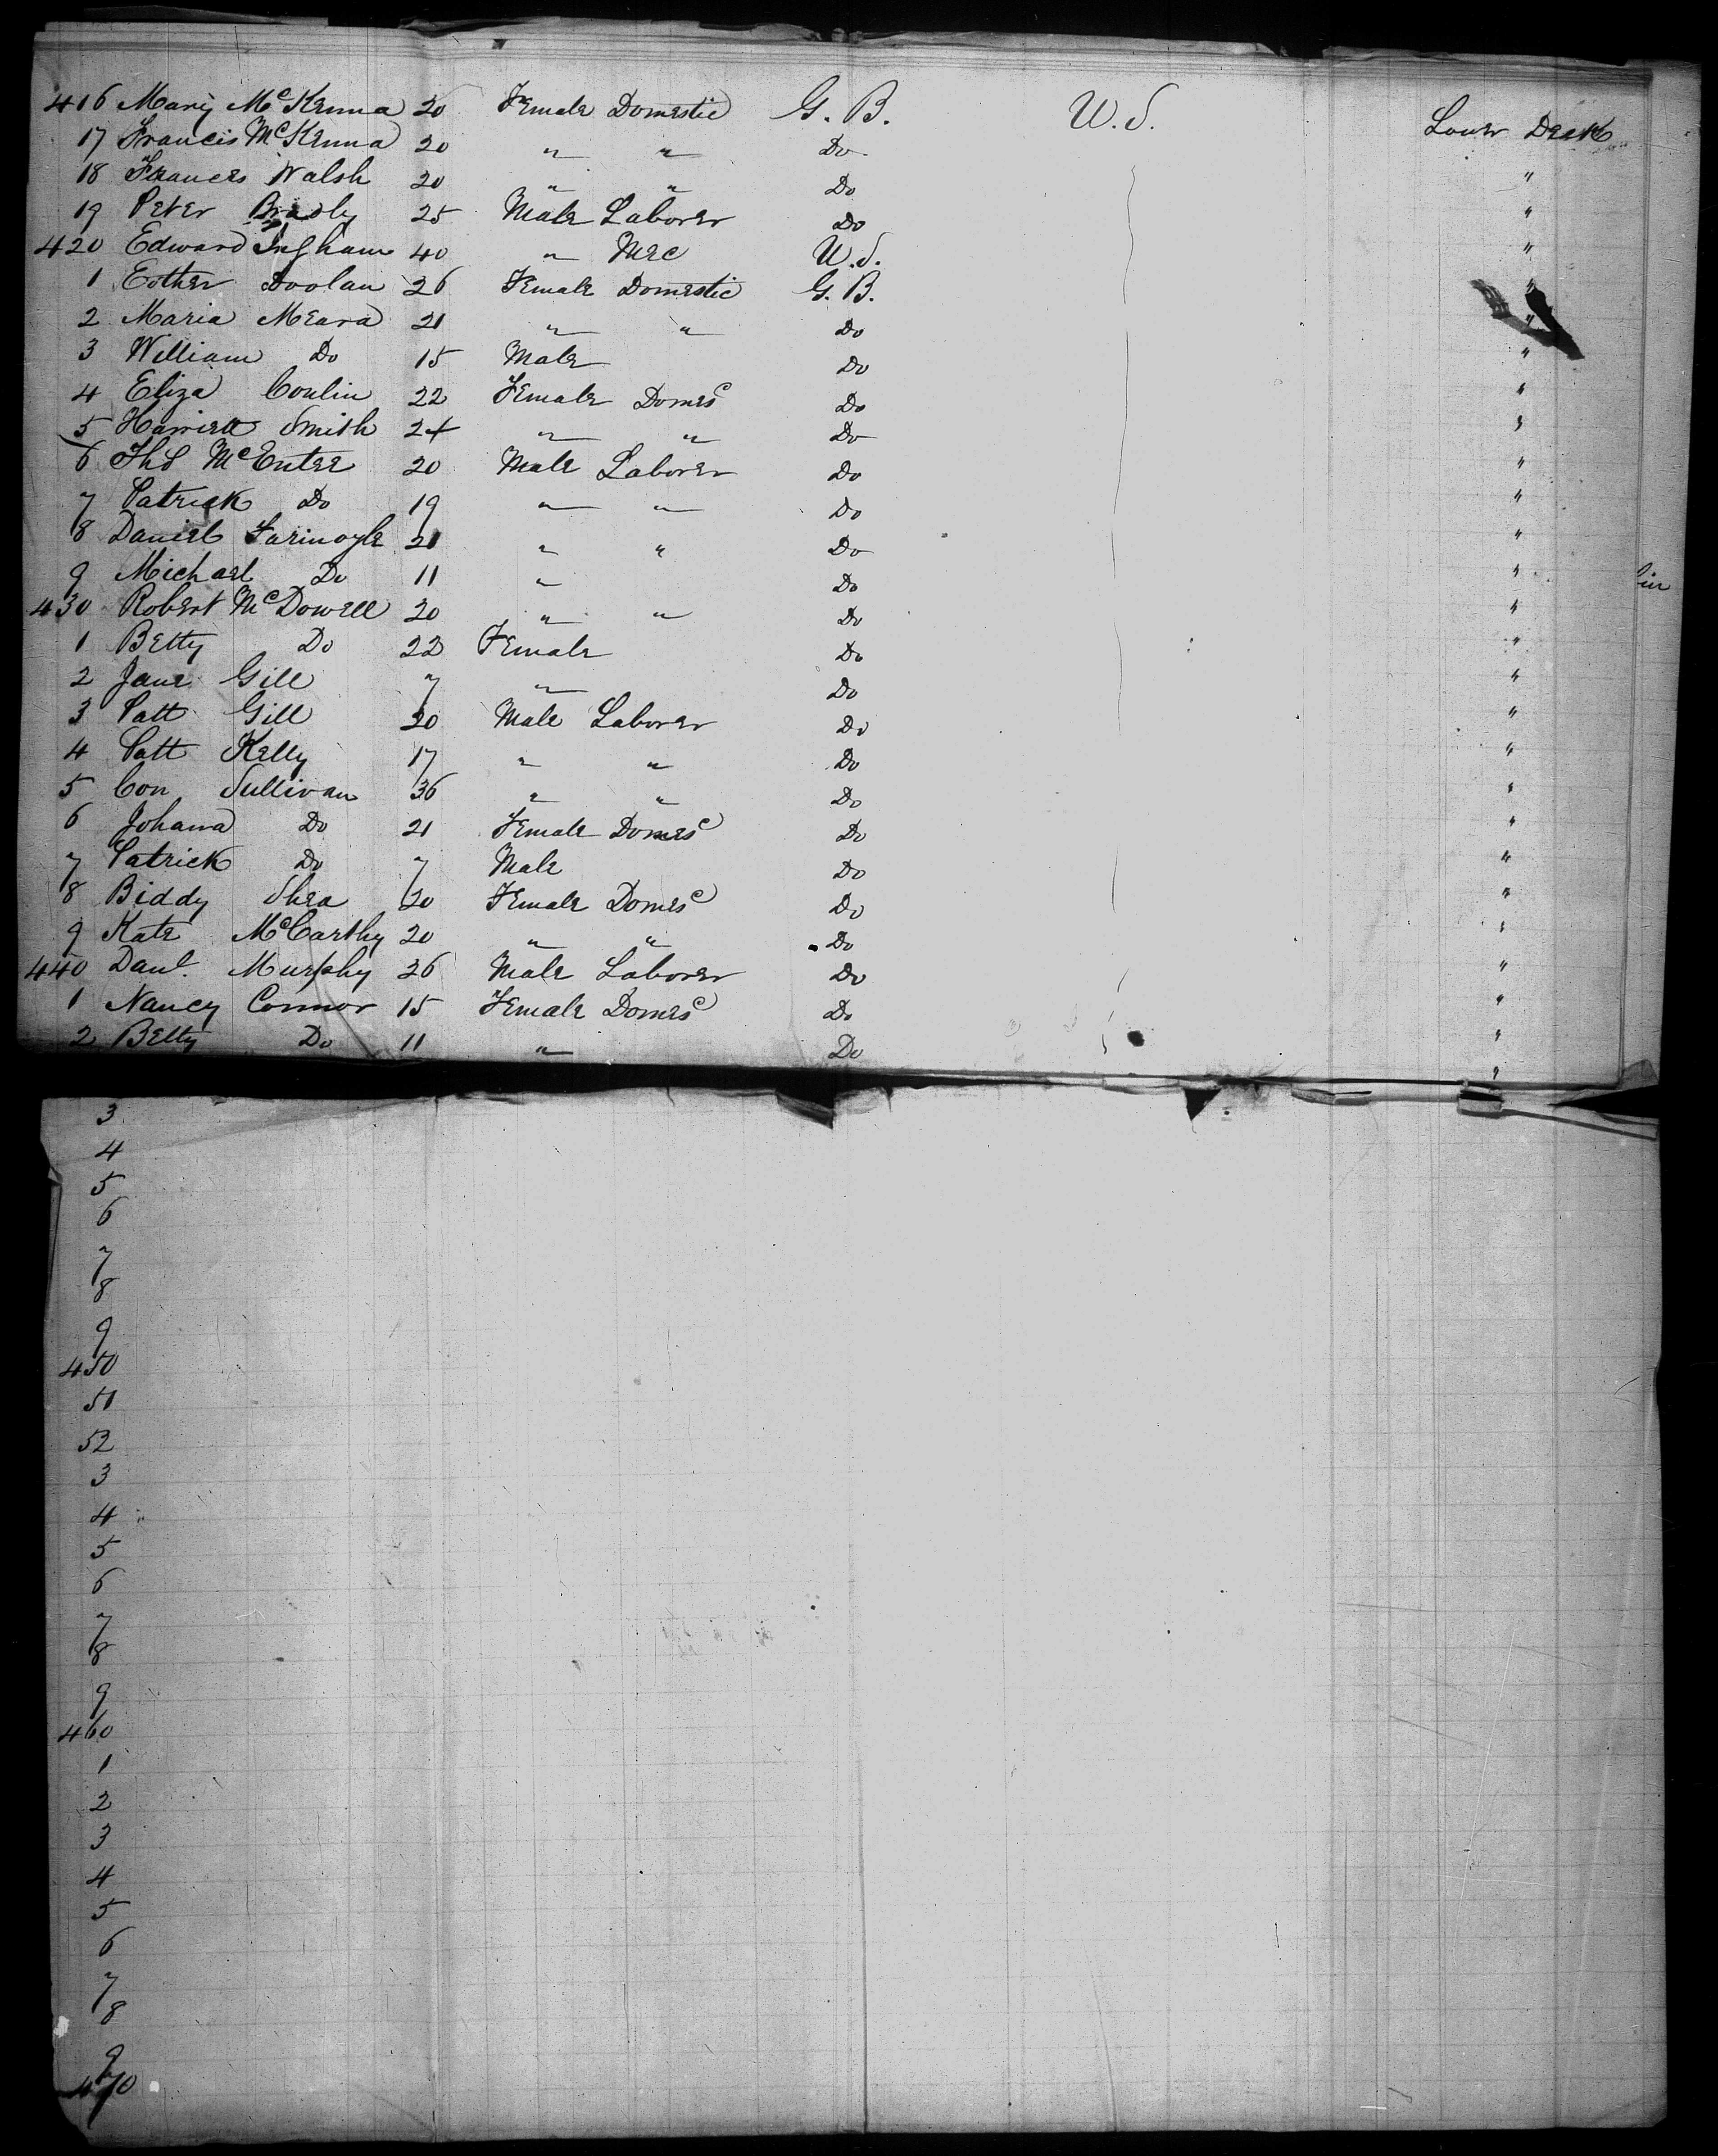 416 Mary McKenna 20 Female Domestic G. B. U. S. Lower Deck
17 Francis McKenna 20 " " Do "
18 Frances Walsh 20 " " Do "
19 Peter Bradly 25 Male Laborer Do "
420 Edward Ingham 40 " Mec U. S. "
1 Esther Doolan 26 Female Domestic G. B. "
2 Maria Meara 21 " " Do "
3 William Do 15 Male Do "
4 Eliza Conlin 22 Female Domesc Do "
5 Harriett Smith 24 " " Do "
6 Thos McEntee 20 Male Laborer Do "
7 Patrick Do 19 " " Do "
8 Daniel 21 " " Do "
9 Michael Do 11 " Do "
430 Robert McDowell 20 " " Do "
1 Betty Do 22 Female Do "
2 Jane Gill 7 " Do "
3 Patt Gill 20 Male Laborer Do "
4 Patt Kelly 17 " " Do "
5 Con Sullivan 36 " " Do "
6 Johana Do 21 Female Domesc Do "
7 Patrick Do 7 Male Do "
8 Biddy Shea 20 Female Domesc Do "
9 Kate McCarthy 20 " " Do "
440 Danl. Murphy 26 Male Laborer Do "
1 Nancy Connor 15 Female Domesc Do "
2 Betty Do 11 " Do "
3
4
5
6
7
8
9
450
51
52
3
4
5
6
7
8
9
460
1
2
3
4
5
6
7
8
9
470